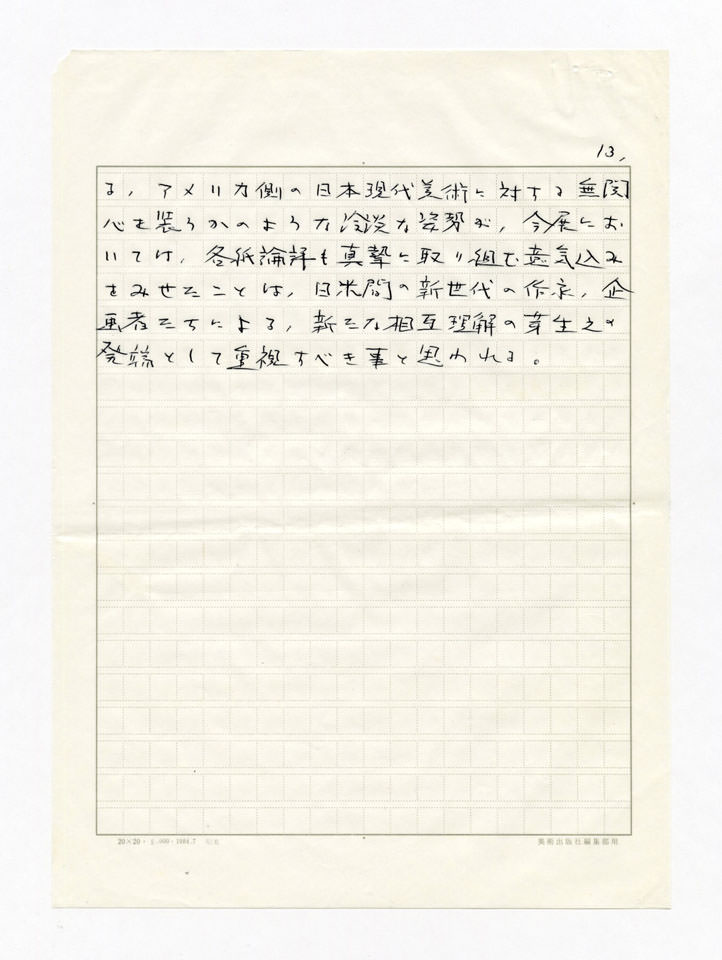 13,
る，アメリカ側の日本現代美術に対する無関
心を装うかのような冷淡な姿勢が，今展にお
いては，各紙論評も真摯に取り組む意気込み
をみせたことは，日米間の新世代の作家，企
画者たちによる，新たな相互理解の芽生えの
発端として重視すべき事と思われる。
20×20・ 1984.7
美術出版社編集部用